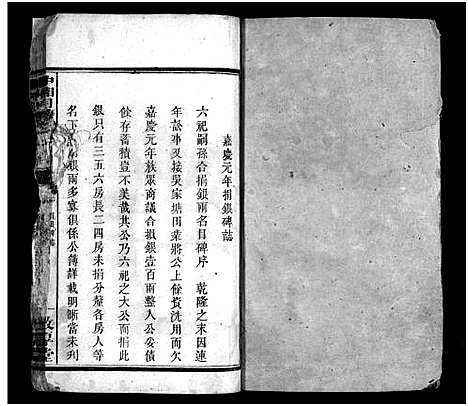 嘉慶元年捐銀碑誌
六祀嗣孫合捐銀兩名目碑序　乾隆之末因連
年訟事又接吳家塘田業將公上餘資洗用而欠
嘉慶元年族眾商議合損銀壹百兩整入公妥債
餘存蓄積豈不美哉其公乃六祀之大公而捐
銀只有三五六房長二四房未捐分釐各房人等
名下 銀兩多寡俱係公簿詳載明晰當未列
敦 堂